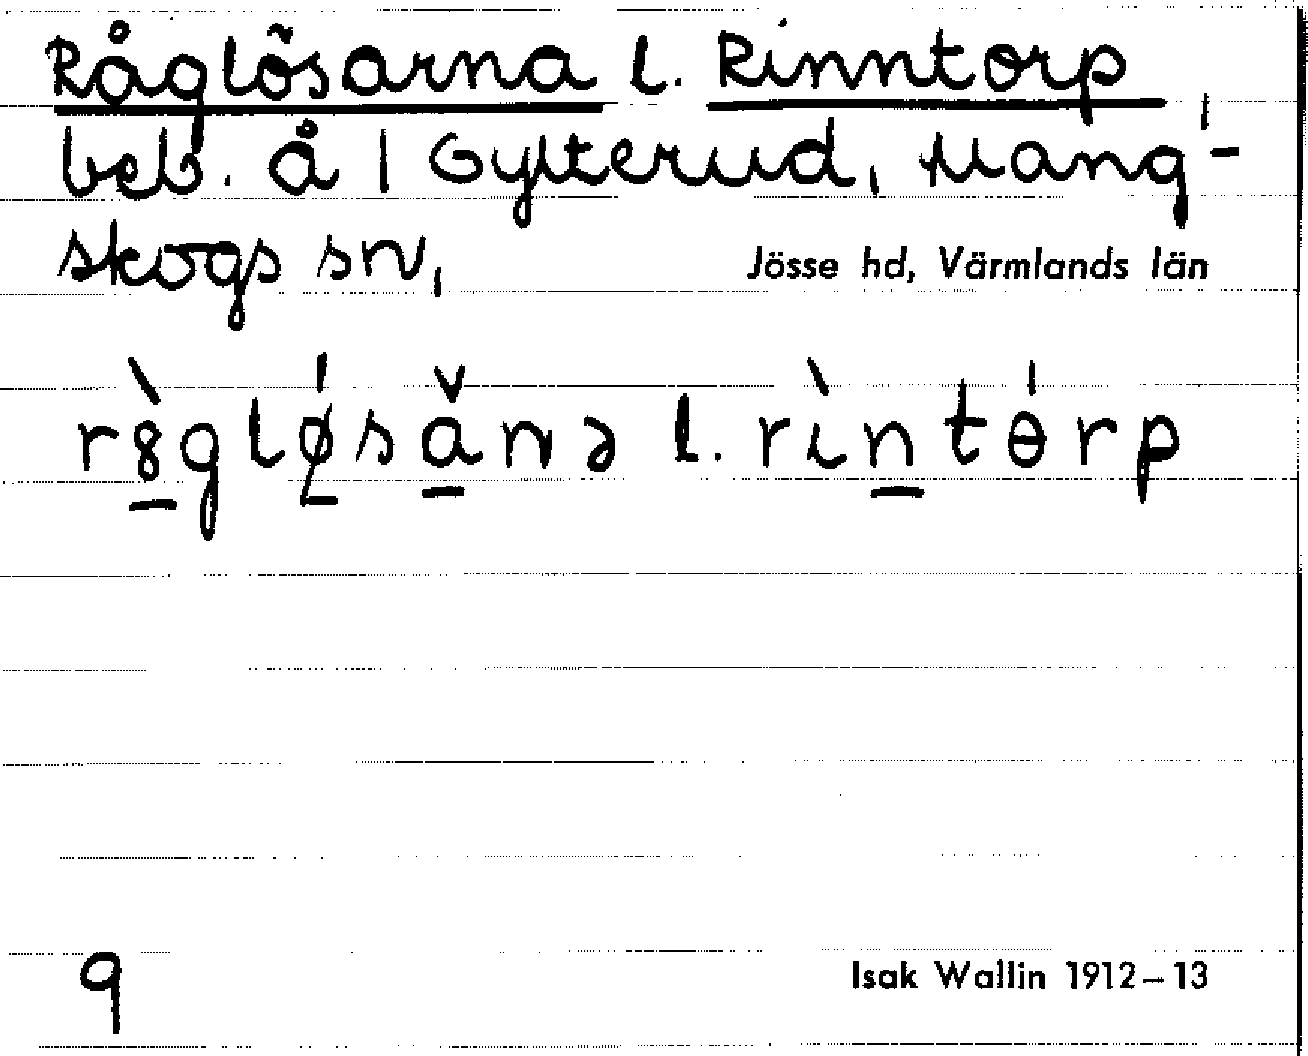 Råglösarna l. Rinntorp,
beb. å 1 Gylterud, Mang-
skogs sn,
Jösse hd, Värmlands län
r8̀gløśǎnə l. rìntɵ́rp
9
Isak Wallin 1912–13